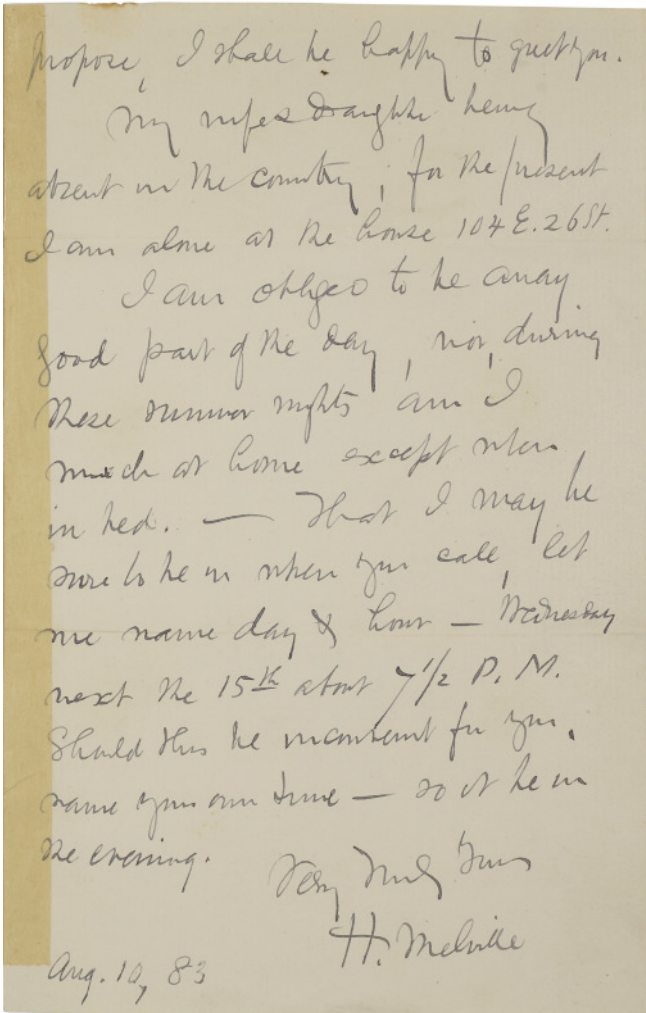 propose, I shall be happy to greet you.
My wife & daughter being
absent in the country, for the present
I am alone at the house 104 E. 26 St.
I am obliged to be away
good part of the day, nor, during
these summer nights am I
much at home except when
in bed. — That I may be
sure to be in when you call, let
me name day & hour — Wednesday
next the 15th about 7 1/2 P. M.
Should this be inconvenient for you,
name your own time — so it be in
the evening.
Very Truly Yours
H. Melville
Aug. 10, 83